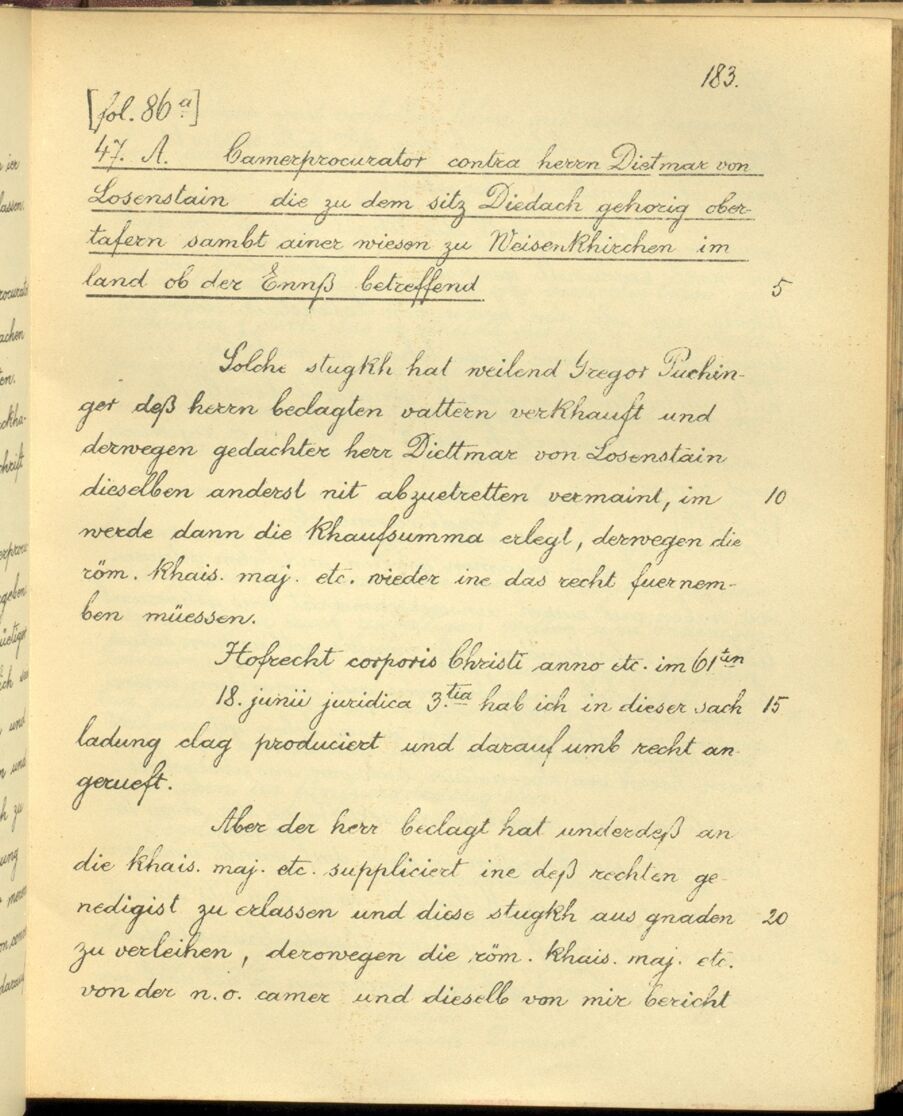 183.
[fol. 86a]
47. A. Camerprocurator contra herrn Dietmar von
Losenstain die zu dem sitz Diedach gehorig ober-
tafern sambt ainer wiesen zu Weisenkhirchen im
land ob der Ennß betreffend 5
Solche stugkh hat weilend Gregor Puchin-
ger deß herrn beclagten vattern verkhauft und
derwegen gedachter herr Diettmar von Losenstain
dieselben anderst nit abzuetretten vermaint, im 10
werde dann die khaufsumma erlegt, derwegen die
röm. khais. maj. etc. wieder ine das recht fuernem-
ben müessen.
Hofrecht corporis Christi anno etc. im 61ten
18. junii juridica 3.tia hab ich in dieser sach 15
ladung clag produciert und darauf umb recht an-
gerueft.
Aber der herr beclagt hat underdeß an
die khais. maj. etc. suppliciert ine deß rechten ge-
nedigist zu erlassen und diese stugkh aus gnaden 20
zu verleihen, derowegen die röm. khais. maj. etc.
von der n. o. camer und dieselb von mir bericht